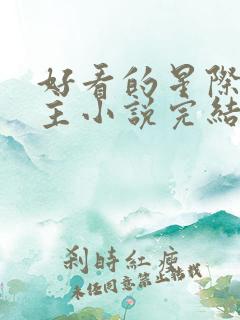 好看的星際
主小說完結
刹時紅瘦
未经同意禁止转载